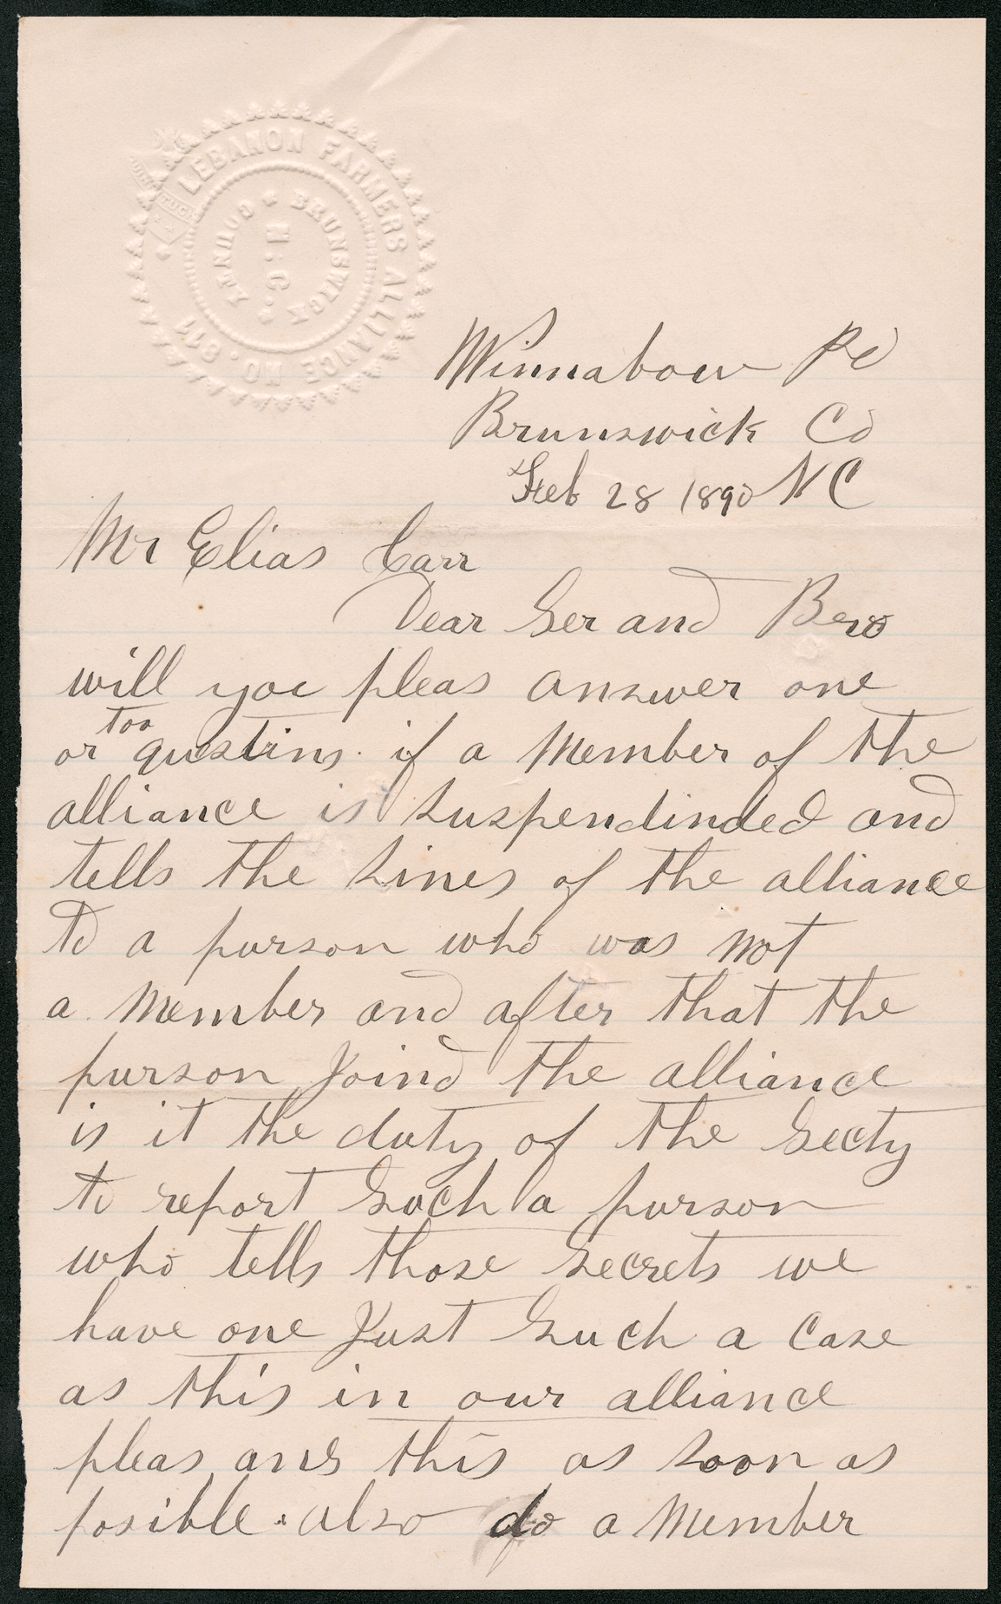 LEBANON FARMERS ALLIANCE NO. 811
BRUNSWICK COUNTY
N.C.
Winnabow PO
Brunswick Co
Feb 28 1890 N C
Mr Elias Carr
Dear Ser and Bro
will you pleas answer one
or too qustins. if a Member of the
alliance is suspendinded and
tells the sines of the alliance
to a purson who was not
a Member and after that the
purson Joind the alliance
is it the duty of the Secty
to report Such a purson
who tells those secrets we
have one Just Such a case
as this in our alliance
pleas ans this as soon as
posible. also do a Member